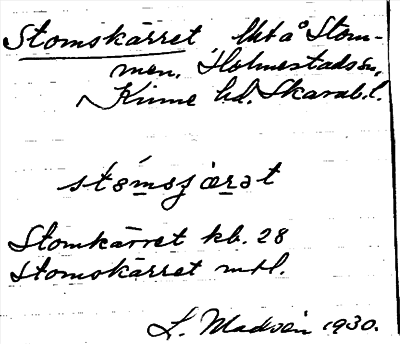 Stomskärret lht å Stom-
men, Holmestads sn,
Kinne hd. Skarab.l.
stømsjærət
Stomkärret kb. 28
Stomskärret mtl.
L. Madsén 1930.